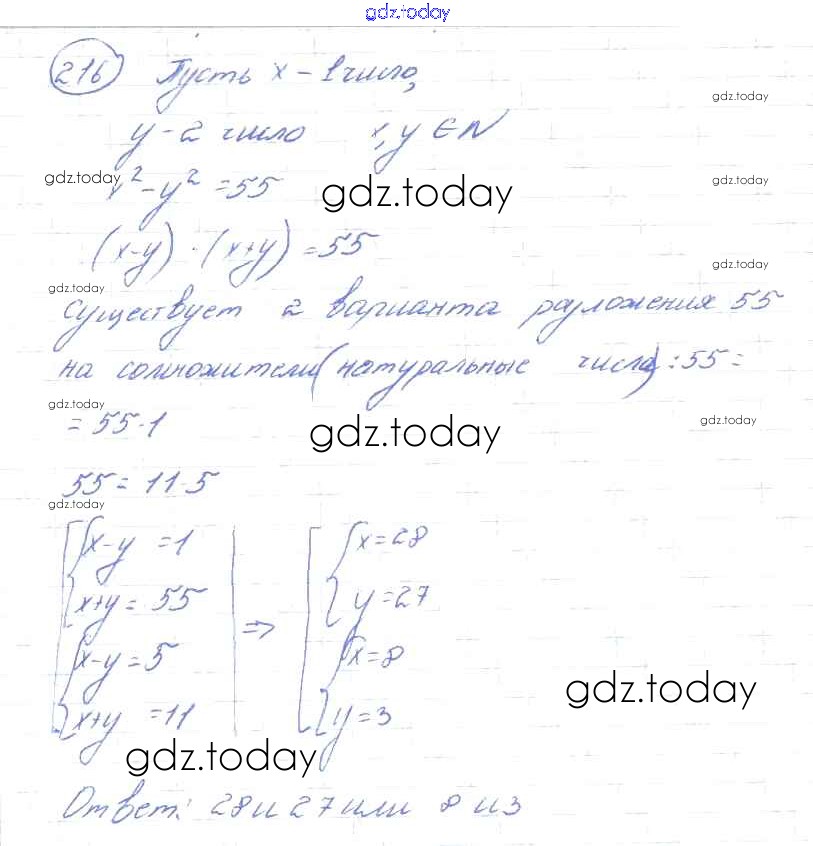 gdz.today
216 Пусть x - 1 число,
gdz.today
y - 2 число x, y ∈ N
gdz.today x² - y² = 55 gdz.today gdz.today
(x-y) · (x+y) = 55
gdz.today
gdz.today
существует 2 варианта разложения 55
на сомножители (натуральные числа): 55 =
gdz.today
= 55·1 gdz.today gdz.today
55 = 11·5
gdz.today
x-y = 1 x = 28
x+y = 55 y = 27
=>
x-y = 5 x = 8
gdz.today
x+y = 11 y = 3
gdz.today
Ответ: 28 и 27 или 8 и 3